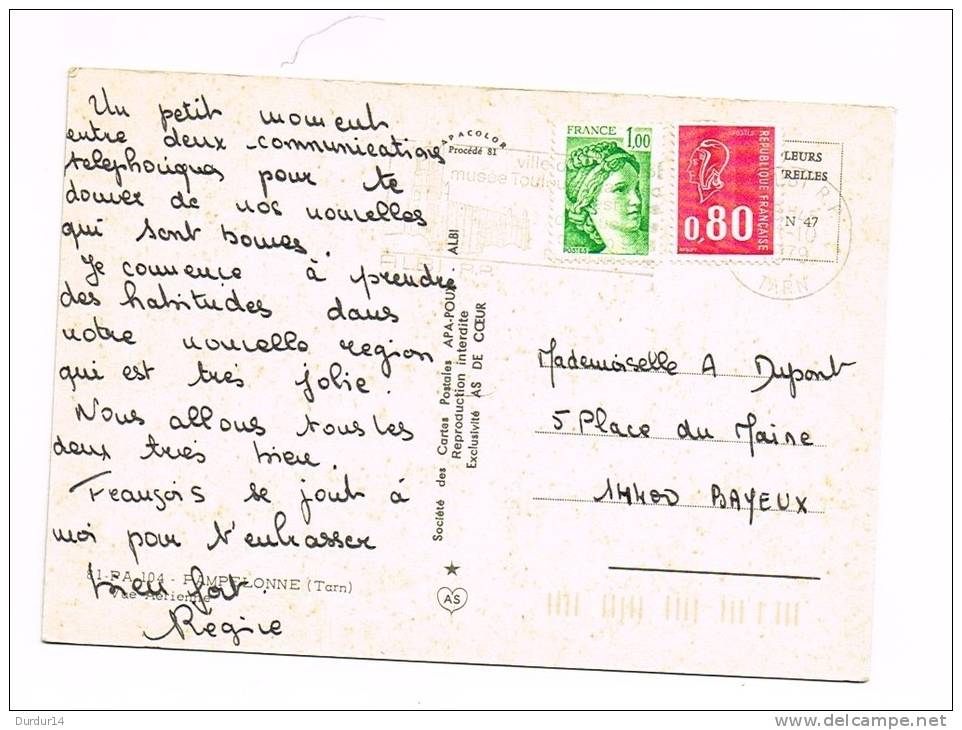 Un petit moment
entre deux communications
telephoniques pour te
donner de nos nouvelles
qui sont bonnes.
Je commence à prendre
des habitudes dans
notre nouvelle region
qui est très jolie.
Nous allons tous les
deux très bien.
François se joint à
moi pour t'embrasser
bien fort.
Régine
81-PA 104 - PAMPELONNE (Tarn)
Vue Aérienne
APACOLOR
Procédé 81
Société des Cartes Postales APA-POUX - ALBI
Reproduction interdite
Exclusivité AS DE CŒUR
AS
ville
musée Toulou
FRANCE 1,00
POSTES
POSTES
RÉPUBLIQUE FRANÇAISE
0,80
LEURS
RELLES
N 47
TARN
Mademoiselle A Dupont
5 Place du Maine
14400 BAYEUX
Durdur14
www.delcampe.net